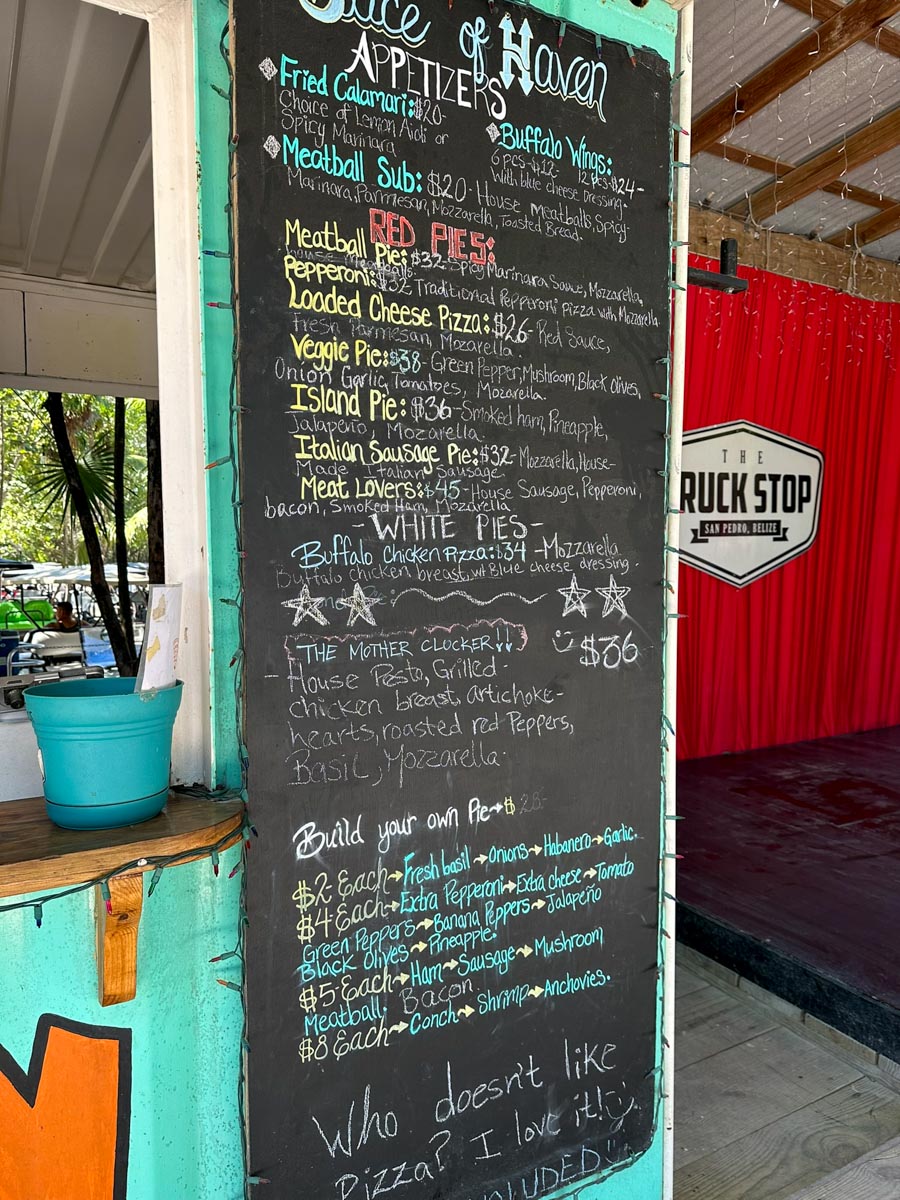 Slice of Haven
APPETIZERS
Fried Calamari: $20-
Choice of Lemon Aioli or
Spicy Marinara
Buffalo Wings:
6 pcs-$12 12 pcs-$24-
With blue cheese dressing-
Meatball Sub: $20- House Meatballs, Spicy-
Marinara, Parmesan, Mozzarella, Toasted Bread.
RED PIES:
Meatball Pie: $32- Spicy Marinara Sauce, Mozzarella,
house meatballs.
Pepperoni: $32 Traditional Pepperoni pizza with Mozzarella.
Loaded Cheese Pizza: $26- Red Sauce,
Fresh Parmesan, Mozarella.
Veggie Pie: $38- Green Pepper, Mushroom, Black olives,
Onion, Garlic, Tomatoes, Mozarella.
Island Pie: $36- Smoked ham, Pineapple,
Jalapeño, Mozarella.
Italian Sausage Pie: $32- Mozzarella, House-
Made Italian Sausage
Meat Lovers: $45- House Sausage, Pepperoni,
bacon, Smoked Ham, Mozzarella
-WHITE PIES-
Buffalo Chicken Pizza: $34 -Mozzarella
Buffalo chicken breast, wt Blue cheese dressing.
THE MOTHER CLOCKER!! $36
- House Pesto, Grilled-
chicken breast, artichoke-
hearts, roasted red Peppers,
Basil, Mozzarella.
Build your own Pie→$ 28-
$2- Each→Fresh basil→Onions→Habanero→Garlic.
$4 Each→Extra Pepperoni→Extra cheese→Tomato
Green Peppers→Banana Peppers→Jalapeño
Black Olives→Pineapple.
$5- Each→Ham→Sausage→Mushroom
Meatball. Bacon.
$8 Each→Conch→Shrimp→Anchovies.
Who doesn't like
Pizza? I love it!
THE
RUCK STOP
SAN PEDRO, BELIZE